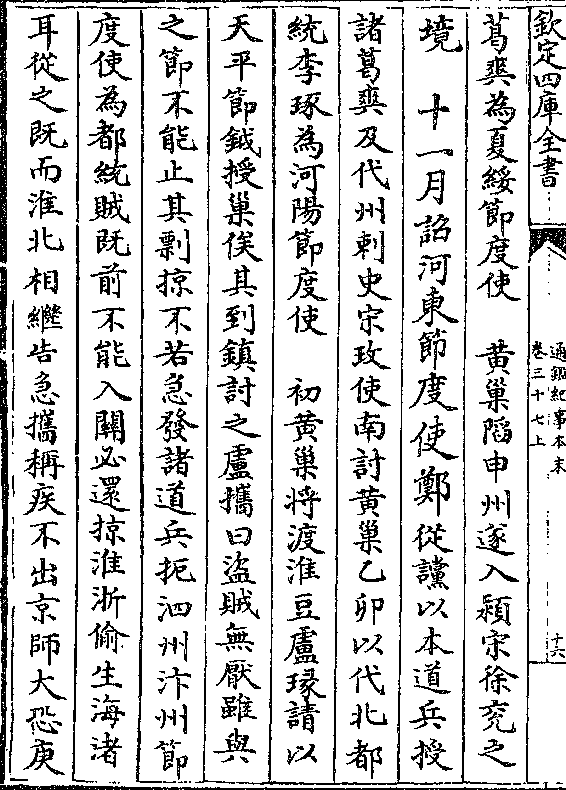 欽定四庫全書
通鑑紀事本末
卷三十七上
十六
葛爽為夏綏節度使　黃巢䧟申州遂入潁宋徐兗之
境　十一月詔河東節度使鄭從讜以本道兵授
諸葛爽及代州刺史宋玫使南討黃巢乙卯以代北都
統李琢為河陽節度使　初黃巢將渡淮豆盧瑑請以
天平節鉞授巢俟其到鎮討之盧攜曰盜賊無厭雖與
之節不能止其剽掠不若急發諸道兵扼泗州汴州節
度使為都統賊既前不能入關必還掠淮浙偷生海渚
耳從之既而淮北相繼告急攜稱疾不出京師大恐庚